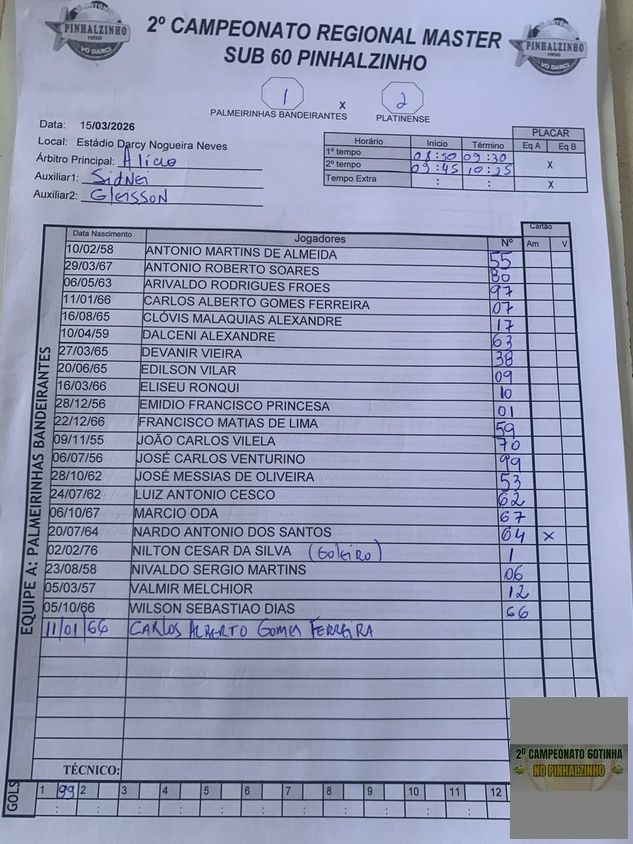 2º CAMPEONATO REGIONAL MASTER
SUB 60 PINHALZINHO
PINHALZINHO
VÔ DARCI
PINHALZINHO
VÔ DARCI
1 x 2
PALMEIRINHAS BANDEIRANTES PLATINENSE
Data: 15/03/2026
Local: Estádio Darcy Nogueira Neves
Árbitro Principal: Alício
Auxiliar1: Sidnei
Auxiliar2: Gleisson
PLACAR
Horário Início Término Eq A Eq B
1º tempo 08:50 09:30 x
2º tempo 09:45 10:25
Tempo Extra : : x
Cartão
Data Nascimento Jogadores Nº Am V
10/02/58 ANTONIO MARTINS DE ALMEIDA 55
29/03/67 ANTONIO ROBERTO SOARES 80
06/05/63 ARIVALDO RODRIGUES FROES 97
11/01/66 CARLOS ALBERTO GOMES FERREIRA 07
16/08/65 CLÓVIS MALAQUIAS ALEXANDRE 17
10/04/59 DALCENI ALEXANDRE 63
27/03/65 DEVANIR VIEIRA 38
20/06/65 EDILSON VILAR 09
16/03/66 ELISEU RONQUI 10
28/12/56 EMIDIO FRANCISCO PRINCESA 01
22/12/66 FRANCISCO MATIAS DE LIMA 59
09/11/55 JOÃO CARLOS VILELA 70
06/07/56 JOSÉ CARLOS VENTURINO 99
28/10/62 JOSÉ MESSIAS DE OLIVEIRA 53
24/07/62 LUIZ ANTONIO CESCO 62
06/10/67 MARCIO ODA 67
20/07/64 NARDO ANTONIO DOS SANTOS 64 x
02/02/76 NILTON CESAR DA SILVA (Goleiro) 1
23/08/58 NIVALDO SERGIO MARTINS 06
05/03/57 VALMIR MELCHIOR 12
05/10/66 WILSON SEBASTIAO DIAS 66
11/01/66 CARLOS ALBERTO GOMES FERREIRA
EQUIPE A: PALMEIRINHAS BANDEIRANTES
TÉCNICO:
GOLS
1 99 2 3 4 5 6 7 8 9 10 11 12
: : : : : : : : : : : :
2º CAMPEONATO 60TINHA
NO PINHALZINHO